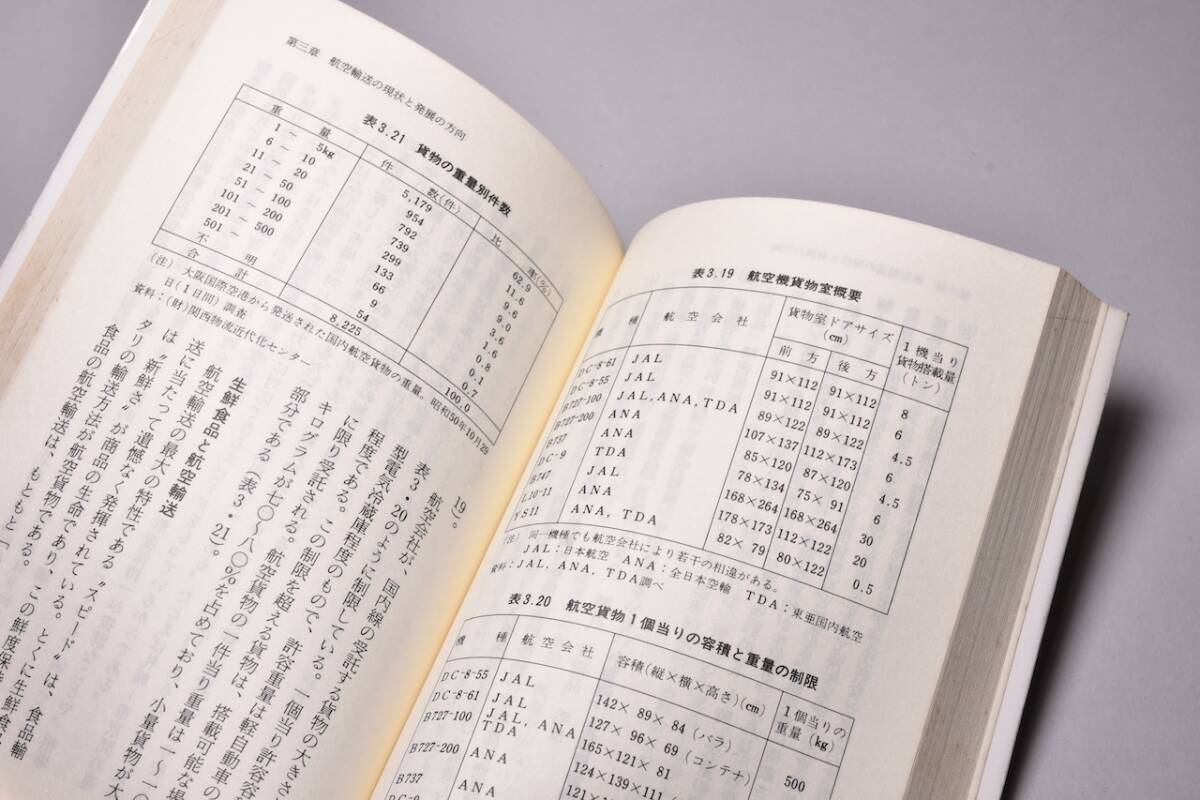 表3.19 航空機貨物室概要
機種 航空会社 貨物室ドアサイズ(cm) 1機当り貨物搭載量(トン)
前方 後方
DC-8-61 JAL 91×112 91×112 8
DC-8-55 JAL 91×112 91×112 6
B727-100 JAL, ANA, TDA 89×122 89×122 4.5
B727-200 ANA 107×137 112×173 6
B737 ANA 85×120 87×120 4.5
DC-9 TDA 78×134 75×91 6
B747 JAL 168×264 168×264 30
L10-11 ANA 178×173 112×122 20
YS11 ANA, TDA 82×79 80×122 0.5
(注) 同一機種でも航空会社により若干の相違がある。
JAL:日本航空 ANA:全日本空輸 TDA:東亜国内航空
資料:JAL, ANA, TDA調べ
表3.20 航空貨物1個当りの容積と重量の制限
機種 航空会社 容積(縦×横×高さ)(cm) 1個当りの重量(kg)
DC-8-55 JAL 142×89×84(バラ)
DC-8-61 JAL 127×96×69(コンテナ)
B727-100 JAL, ANA TDA 165×121×81 500
B727-200 ANA 124×139×111
B737 ANA
第三章 航空輸送の現状と発展の方向
表3.21 貨物の重量別件数
重量 件数(件) 比率(%)
1 – 5kg 5,179 62.9
6 – 10 954 11.6
11 – 20 792 9.6
21 – 50 739 9.0
51 – 100 299 3.6
101 – 200 133 1.6
201 – 500 66 0.8
501 – 9 0.1
不明 54 0.7
合計 8,225 100.0
(注) 大阪国際空港から発送された国内航空貨物の重量。昭和50年10月29
日(1日間)調査
資料:(財)関西物流近代化センター
19)。
航空会社が、国内線の受託する貨物の大きさ
表3・20のように制限している。一個当り許容容
型電気冷蔵庫程度のもので、許容重量は軽自動車の
程度である。この制限を超える貨物は、搭載可能な場
に限り受託される。航空貨物の一件当り重量は一〜一〇
キログラムが七〇〜八〇％を占めており、小量貨物が大
部分である(表3・21)。
生鮮食品と航空輸送
航空輸送の最大の特性である〝スピード〟は、食品輸
送に当たって遺憾なく発揮されている。とくに生鮮食
は〝新鮮さ〟が商品の生命であり、この鮮度保
タリの輸送方法が航空貨物である。
食品の航空輸送は、もともと「